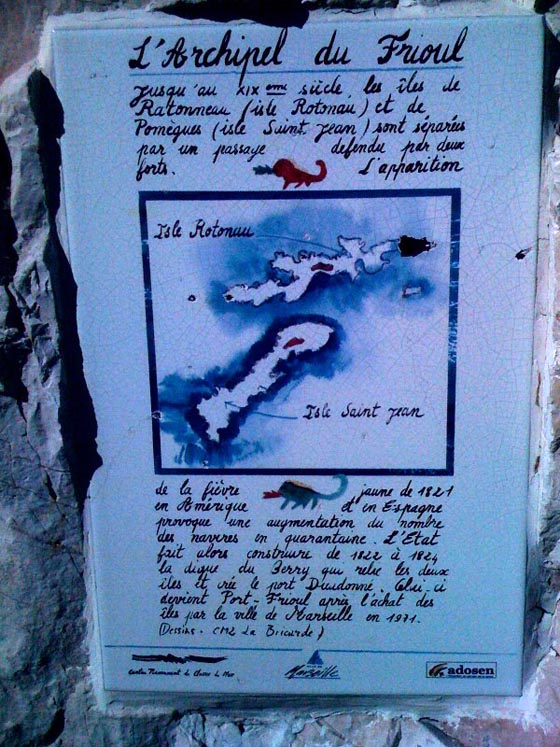 L'Archipel du Frioul
Jusqu'au XIXème siècle, les îles de
Ratonneau (isle Rotonau) et de
Pomègues (isle Saint Jean) sont séparées
par un passage defendu par deux
forts. L'apparition
Isle Rotonau
Isle Saint Jean
de la fièvre jaune de 1821
en Amérique et en Espagne
provoque une augmentation du nombre
des navires en quarantaine. L'Etat
fait alors construire de 1822 à 1824
la digue du Berry qui relie les deux
îles et crée le port Dieudonné. Celui-ci
devient Port-Frioul après l'achat des
îles par la ville de Marseille en 1971.
(Dessins. CM2 La Bricarde)
Marseille
adosen